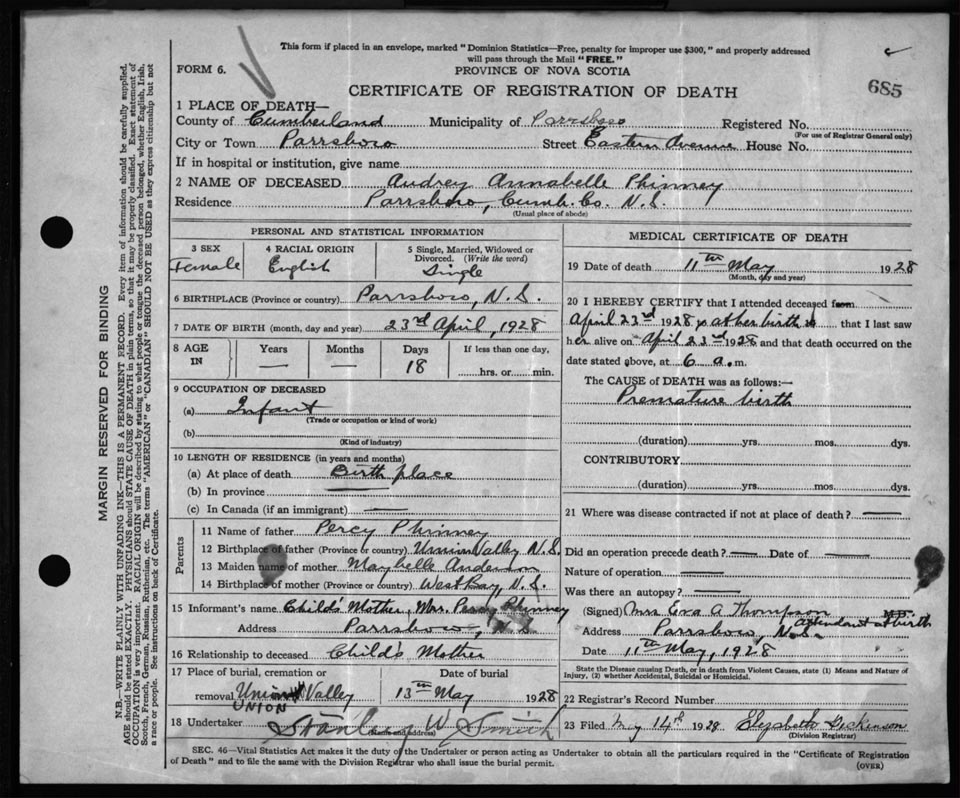 This form if placed in an envelope, marked "Dominion Statistics—Free, penalty for improper use $300," and properly addressed
will pass through the Mail "FREE."
FORM 6.
PROVINCE OF NOVA SCOTIA
CERTIFICATE OF REGISTRATION OF DEATH
685
1 PLACE OF DEATH—
County of Cumberland Municipality of Parrsboro Registered No.
(For use of Registrar General only)
City or Town Parrsboro Street Eastern Avenue House No.
If in hospital or institution, give name
2 NAME OF DECEASED Audrey Annabelle Phinney
Residence Parrsboro, Cumb. Co. N.S.
(Usual place of abode)
PERSONAL AND STATISTICAL INFORMATION
3 SEX
Female
4 RACIAL ORIGIN
English
5 Single, Married, Widowed or
Divorced. (Write the word)
Single
6 BIRTHPLACE (Province or country) Parrsboro, N.S.
7 DATE OF BIRTH (month, day and year) 23rd April, 1928
8 AGE IN
Years —
Months —
Days 18
If less than one day,
hrs. or min.
9 OCCUPATION OF DECEASED
(a) Infant
(Trade or occupation or kind of work)
(b)
(Kind of industry)
10 LENGTH OF RESIDENCE (in years and months)
(a) At place of death Birth place
(b) In province
(c) In Canada (if an immigrant)
Parents
11 Name of father Percy Phinney
12 Birthplace of father (Province or country) Union Valley N.S.
13 Maiden name of mother Maybelle Anderson
14 Birthplace of mother (Province or country) West Bay, N.S.
15 Informant's name Child's Mother, Mrs. Percy Phinney
Address Parrsboro, N.S.
16 Relationship to deceased Child's Mother
17 Place of burial, cremation or
removal Union Valley
UNION
Date of burial
13th May 1928
18 Undertaker Stanley W Smith
(Name and address)
MEDICAL CERTIFICATE OF DEATH
19 Date of death 11th May 1928
(Month, day and year)
20 I HEREBY CERTIFY that I attended deceased from
April 23rd 1928 at her birth that I last saw
her alive on April 23rd 1928 and that death occurred on the
date stated above, at 6 a.m.
The CAUSE of DEATH was as follows:—
Premature birth
(duration) yrs. mos. dys.
CONTRIBUTORY
(duration) yrs. mos. dys.
21 Where was disease contracted if not at place of death? —
Did an operation precede death? — Date of —
Nature of operation —
Was there an autopsy? —
(Signed) Mrs Eva A Thompson M.D.
attendant at birth
Address Parrsboro, N.S.
Date 11th May, 1928
State the Disease causing Death, or in death from Violent Causes, state (1) Means and Nature of
Injury, (2) whether Accidental, Suicidal or Homicidal.
22 Registrar's Record Number
23 Filed May 14th 1928 Elizabeth Dickinson
(Division Registrar)
SEC. 46—Vital Statistics Act makes it the duty of the Undertaker or person acting as Undertaker to obtain all the particulars required in the "Certificate of Registration
of Death" and to file the same with the Division Registrar who shall issue the burial permit.
(OVER)
MARGIN RESERVED FOR BINDING
N.B.—WRITE PLAINLY WITH UNFADING INK—THIS IS A PERMANENT RECORD. Every item of information should be carefully supplied.
AGE should be stated EXACTLY. PHYSICIANS should STATE CAUSE OF DEATH in plain terms, so that it may be properly classified. Exact statement of
OCCUPATION is very important. RACIAL ORIGIN will be described by stating to what people or tongue the deceased person belonged, whether English, Irish,
Scotch, French, German, Russian, Ruthenian, etc. The terms "AMERICAN" or "CANADIAN" SHOULD NOT BE USED as they express citizenship but not
a race or people. See instructions on back of Certificate.